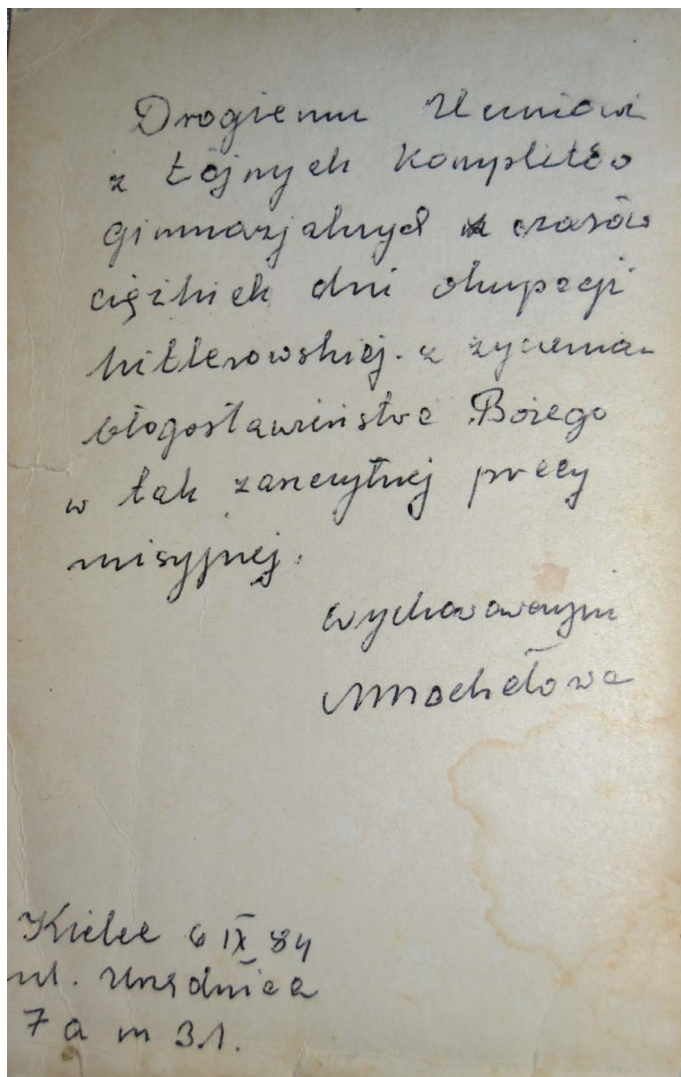 Drogiemu Uczniowi
z tajnych kompletów
gimnazjalnych z czasów
ciężkich dni okupacji
hitlerowskiej. z życzeniami
błogosławieństwa Bożego
w tak zaszczytnej pracy
misyjnej.
wychowawczyni
Kielce 6 IX 84
ul. Urzędnicza
7 a m 31.